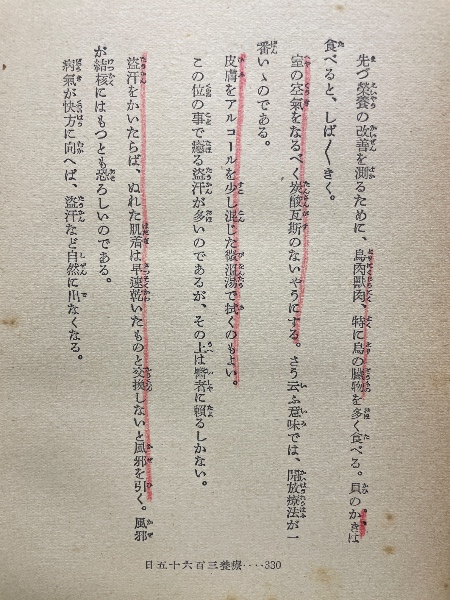 先づ榮養の改善を測るために、鳥肉獸肉、特に鳥の臟物を多く食べる。貝のかきは
食べると、しば〱きく。
室の空氣をなるべく炭酸瓦斯のないやうにする。さう云ふ意味では、開放療法が一
番いゝのである。
皮膚をアルコールを少し混じた微溫湯で拭くのもよい。
この位の事で癒る盜汗が多いのであるが、その上は醫者に賴るしかない。
盜汗をかいたらば、ぬれた肌着は早速乾いたものと交換しないと風邪を引く。風邪
が結核にはもつとも恐ろしいのである。
病氣が快方に向へば、盜汗など自然に出なくなる。
日五十六百三養療‥‥330